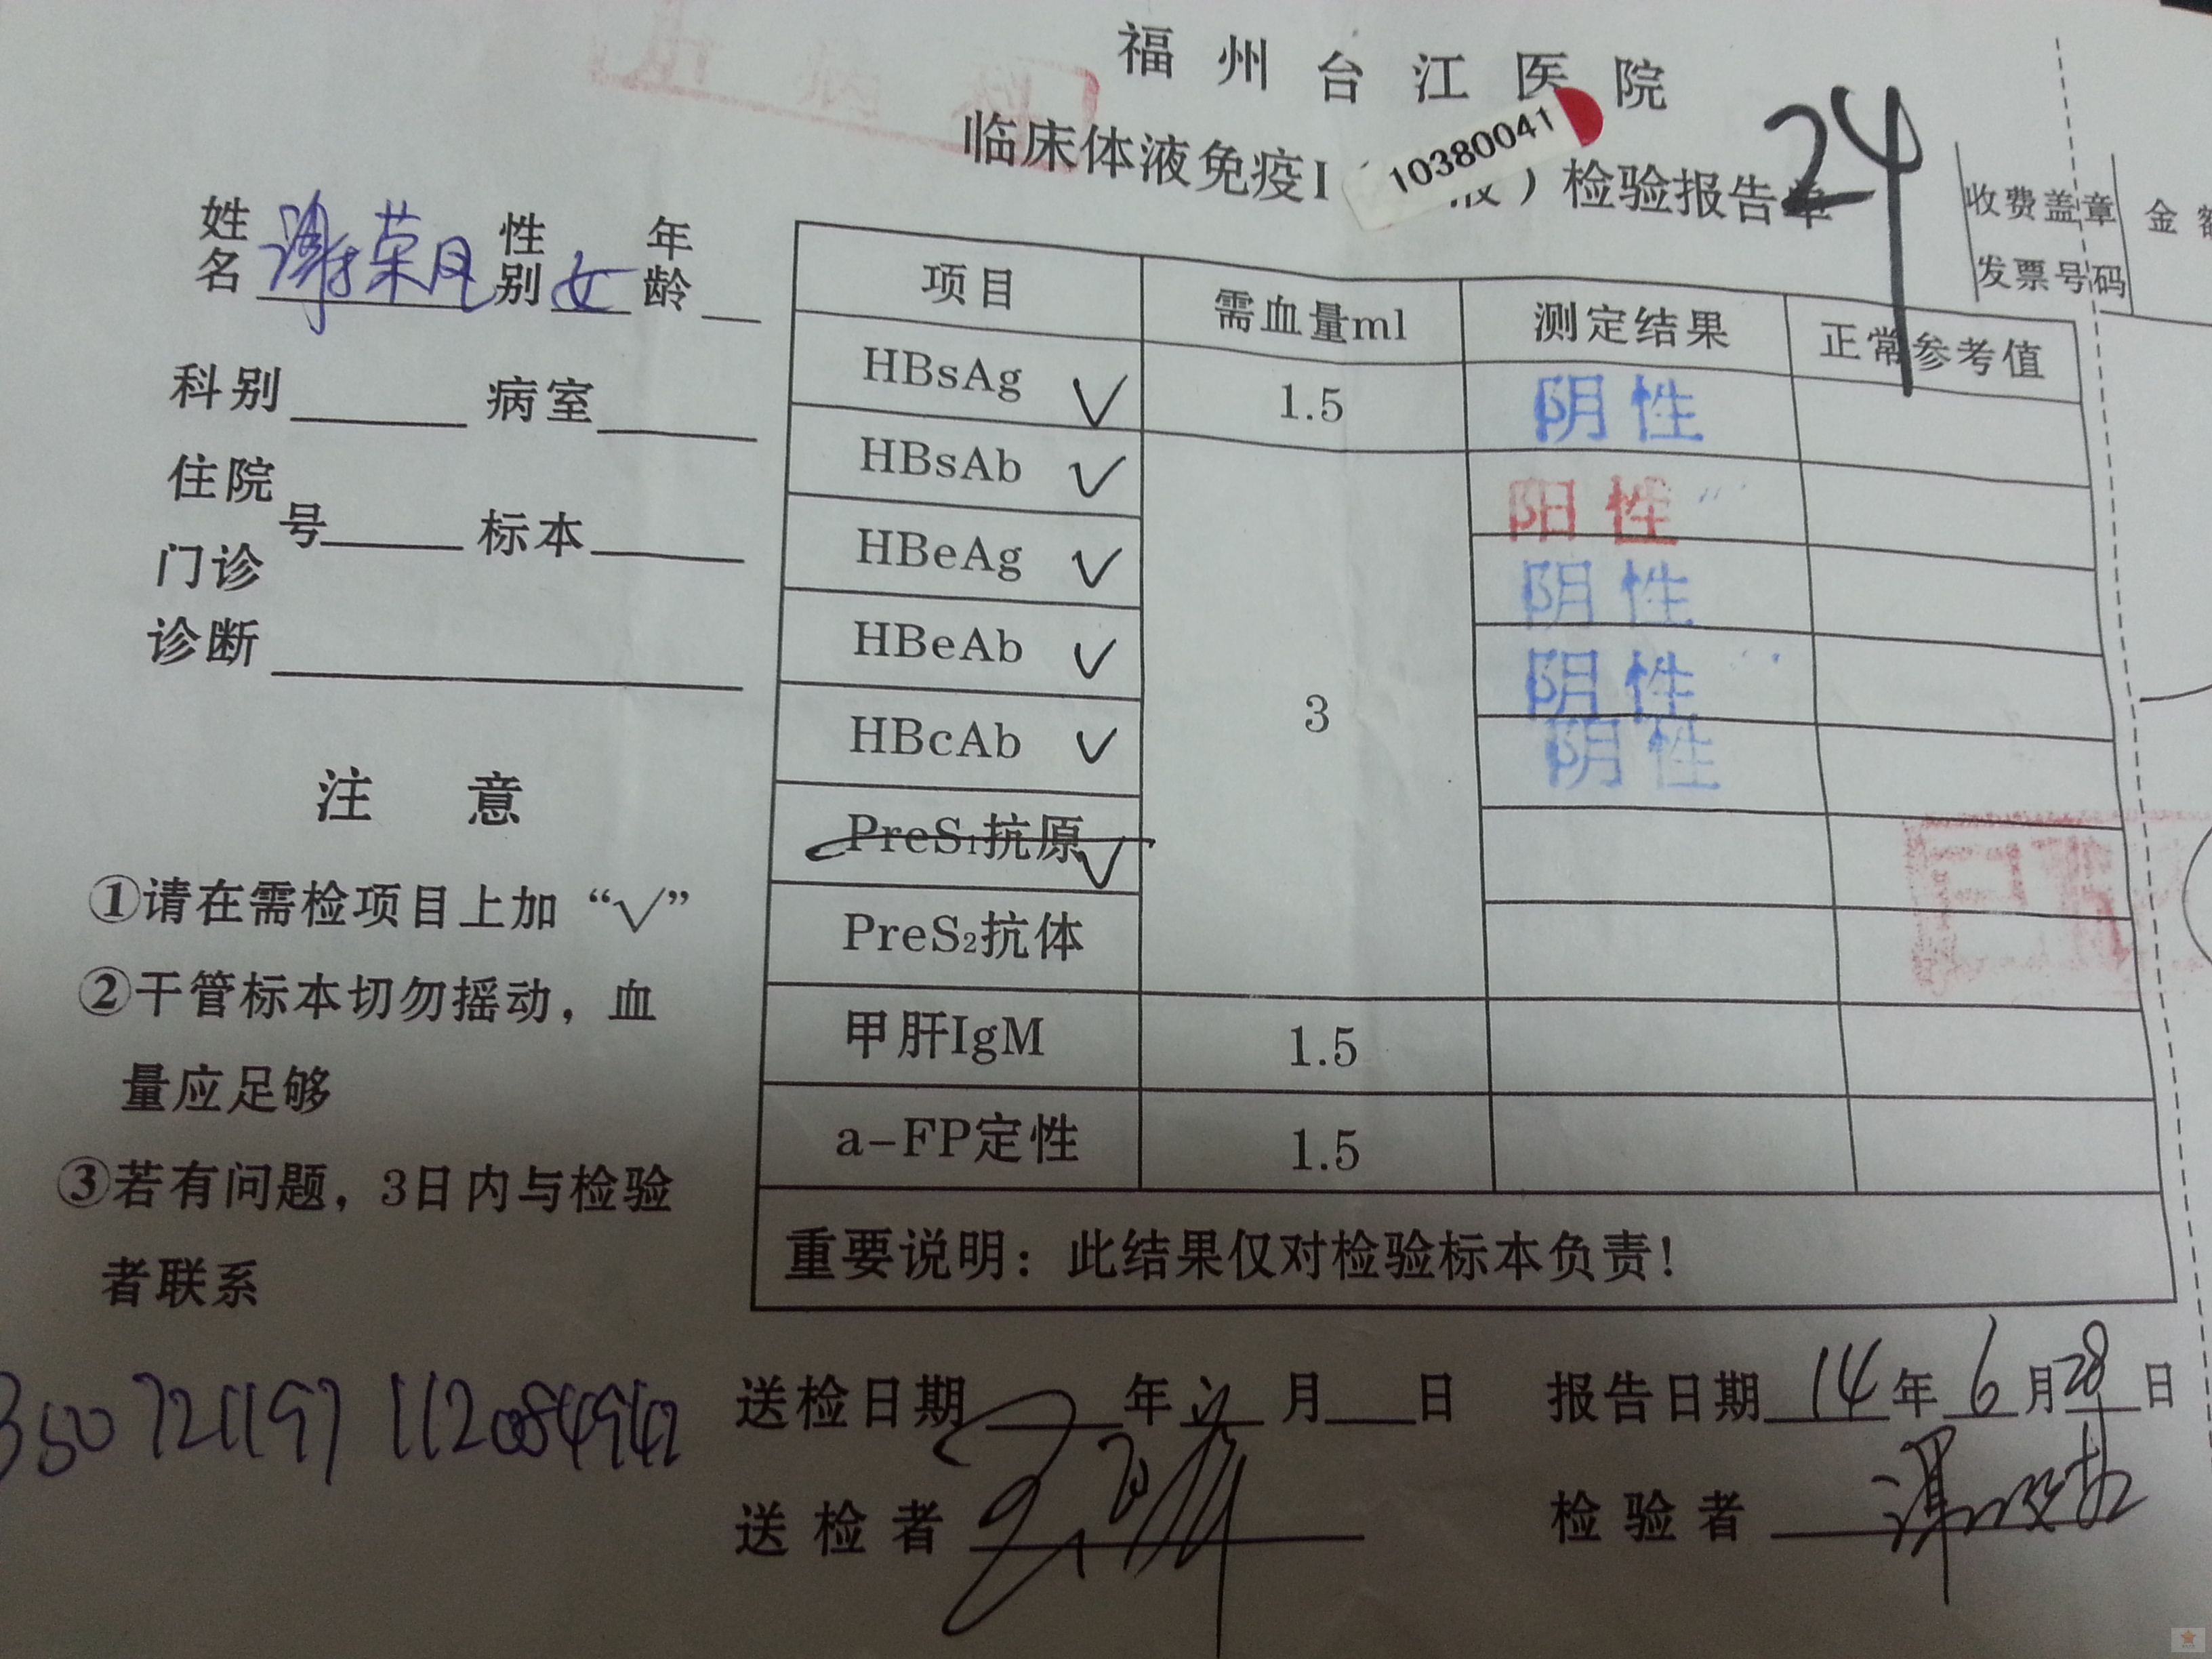 福州台江医院
临床体液免疫I 液）检验报告单
10380041
24
收费盖章 金额
发票号码
姓名 谢荣月 性别 女 年龄
科别 病室
住院
号 标本
门诊
诊断
项目 需血量ml 测定结果 正常参考值
HBsAg √ 1.5 阴性
HBsAb √ 阳性
HBeAg √ 阴性
HBeAb √ 阴性
3
HBcAb √ 阴性
PreS₁抗原 √
PreS₂抗体
甲肝IgM 1.5
a-FP定性 1.5
重要说明：此结果仅对检验标本负责！
注意
①请在需检项目上加“√”
②干管标本切勿摇动，血
量应足够
③若有问题，3日内与检验
者联系
送检日期 年 月 日 报告日期 14 年 6 月 28 日
送检者 检验者